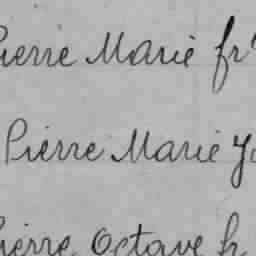 Pierre Marie fr
Pierre Marie
Pierre Octave